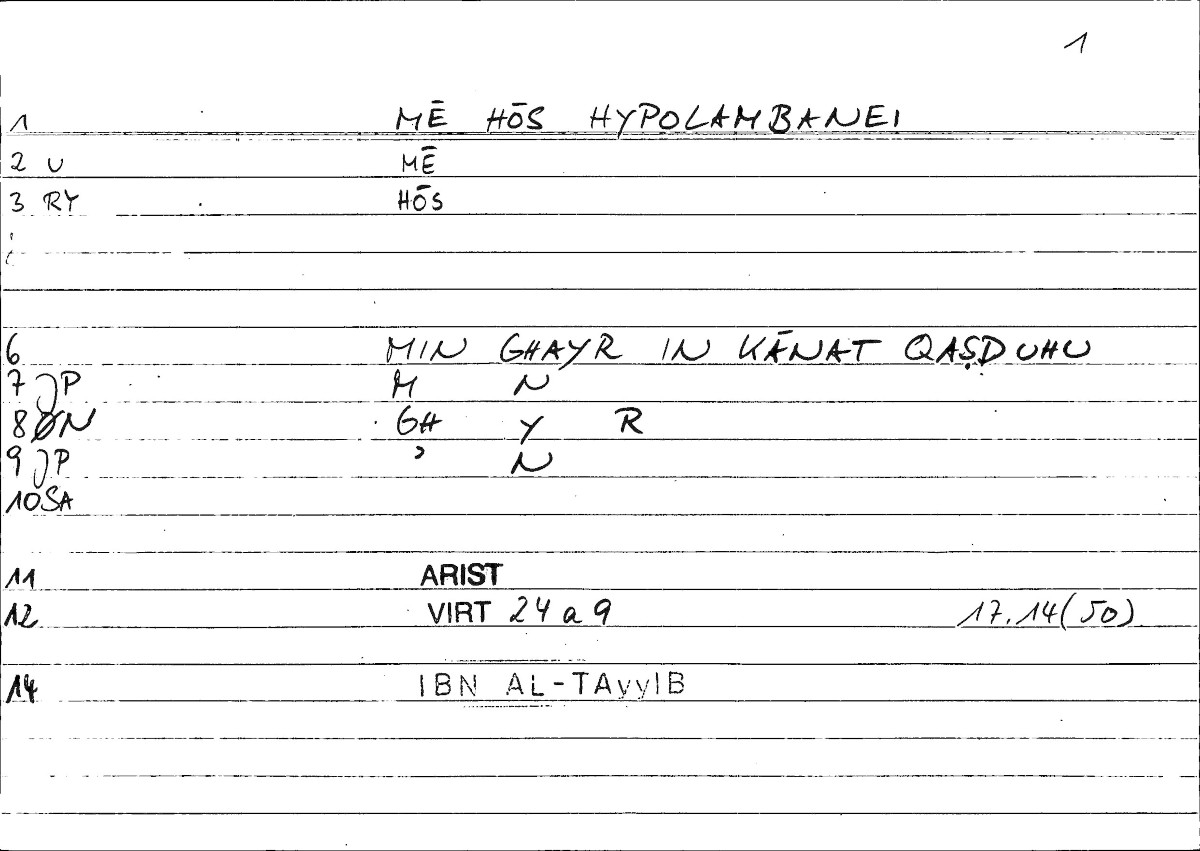 1
1 MĒ HŌS HYPOLAMBANEI
2 U MĒ
3 RY HŌS
6 MIN GHAYR IN KĀNAT QAṢDUHU
7 JP M N
8 ØN GH Y R
9 JP ʾ N
10 SA
11 ARIST
12 VIRT 24 a 9 17.14(50)
14 IBN AL-TAyyIB